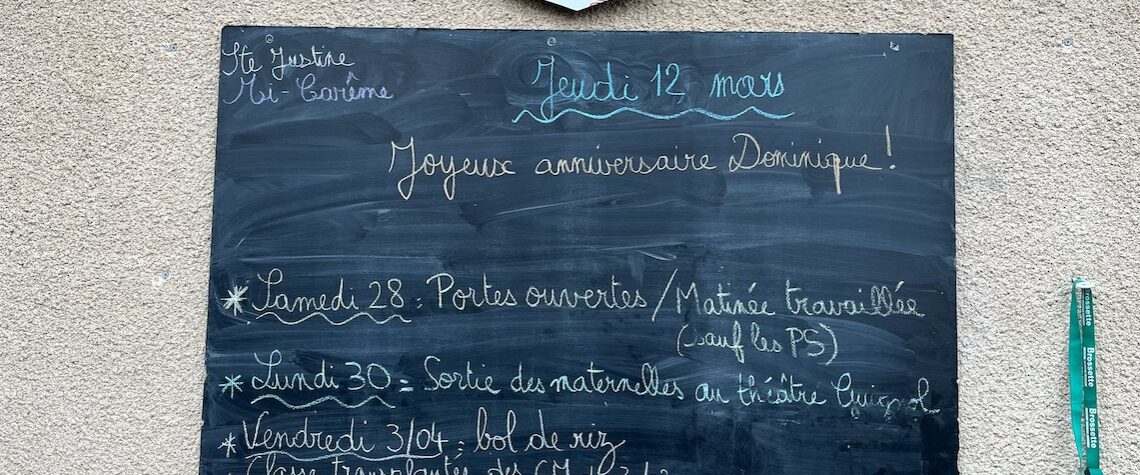 Ste Justine
Mi-Carême
Jeudi 12 mars
Joyeux anniversaire Dominique !
* Samedi 28 : Portes ouvertes / Matinée travaillée
(sauf les PS)
* Lundi 30 = Sortie des maternelles au théâtre Guignol
* Vendredi 3/04 : bol de riz
Classe transplantée des CM
Brossette
Brossette
Brossette